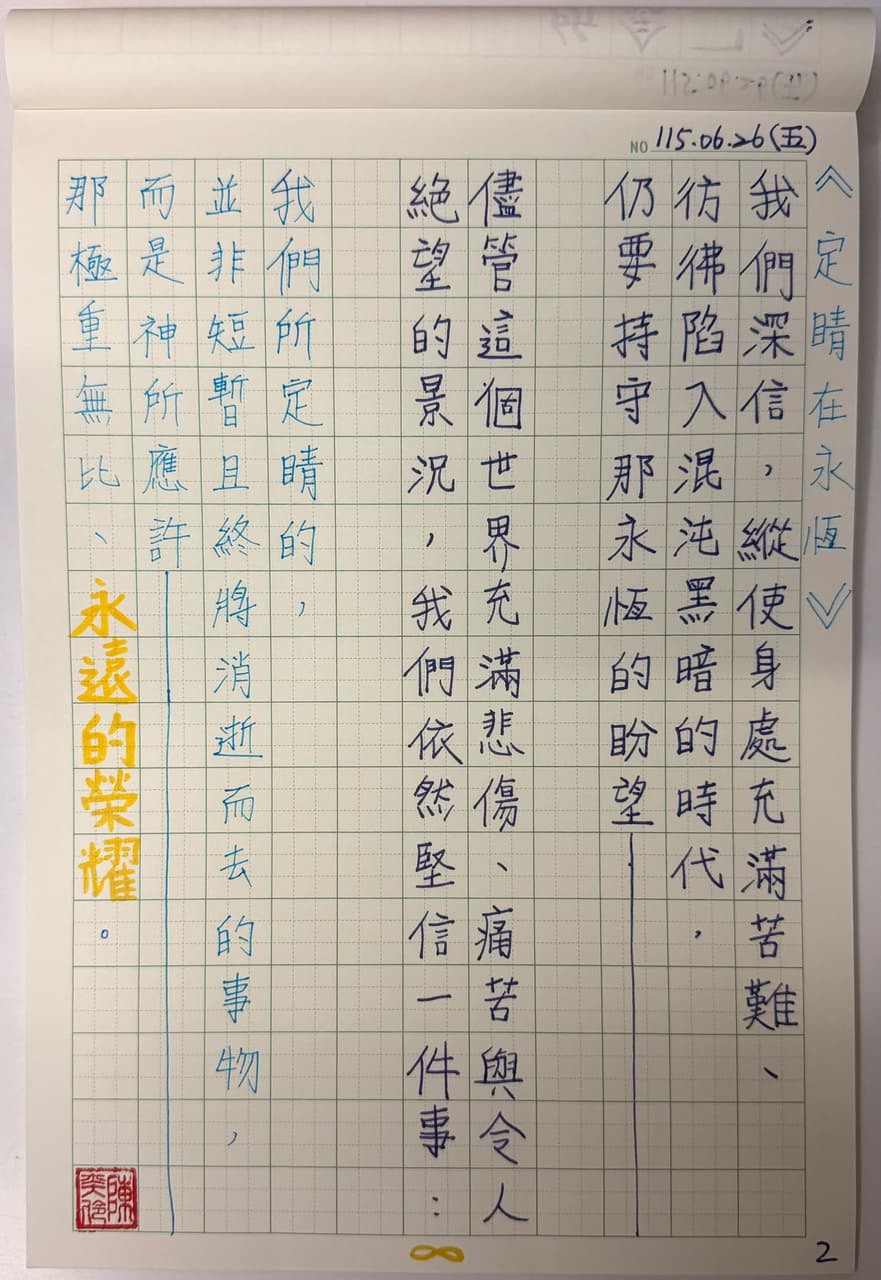 NO 115.06.26(五)
《定睛在永恆》
我們深信,縱使身處充滿苦難、
彷彿陷入混沌黑暗的時代,
仍要持守那永恆的盼望——
儘管這個世界充滿悲傷、痛苦與令人
絕望的景況,我們依然堅信一件事:
我們所定睛的,
並非短暫且終將消逝而去的事物,
而是神所應許——
那極重無比、永遠的榮耀。
∞
2